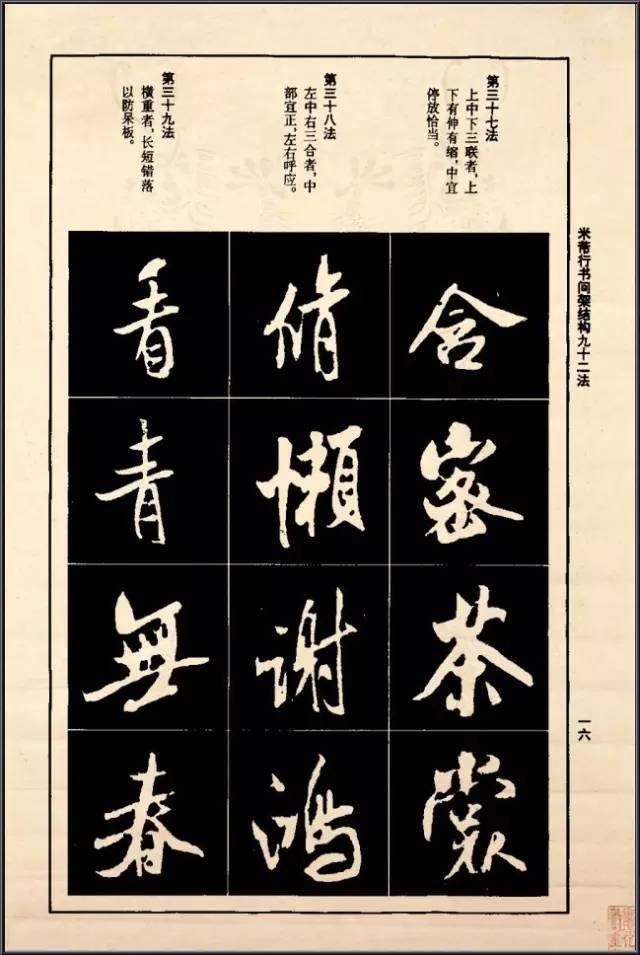 米芾行书间架结构九十二法
一六
第三十七法
上中下三联者，上
下有伸有缩，中宜
停放恰当。
含
密
茶
裳
第三十八法
左中右三合者，中
部宜正，左右呼应。
脩
懒
谢
鸿
第三十九法
横重者，长短错落
以防呆板。
看
青
無
春